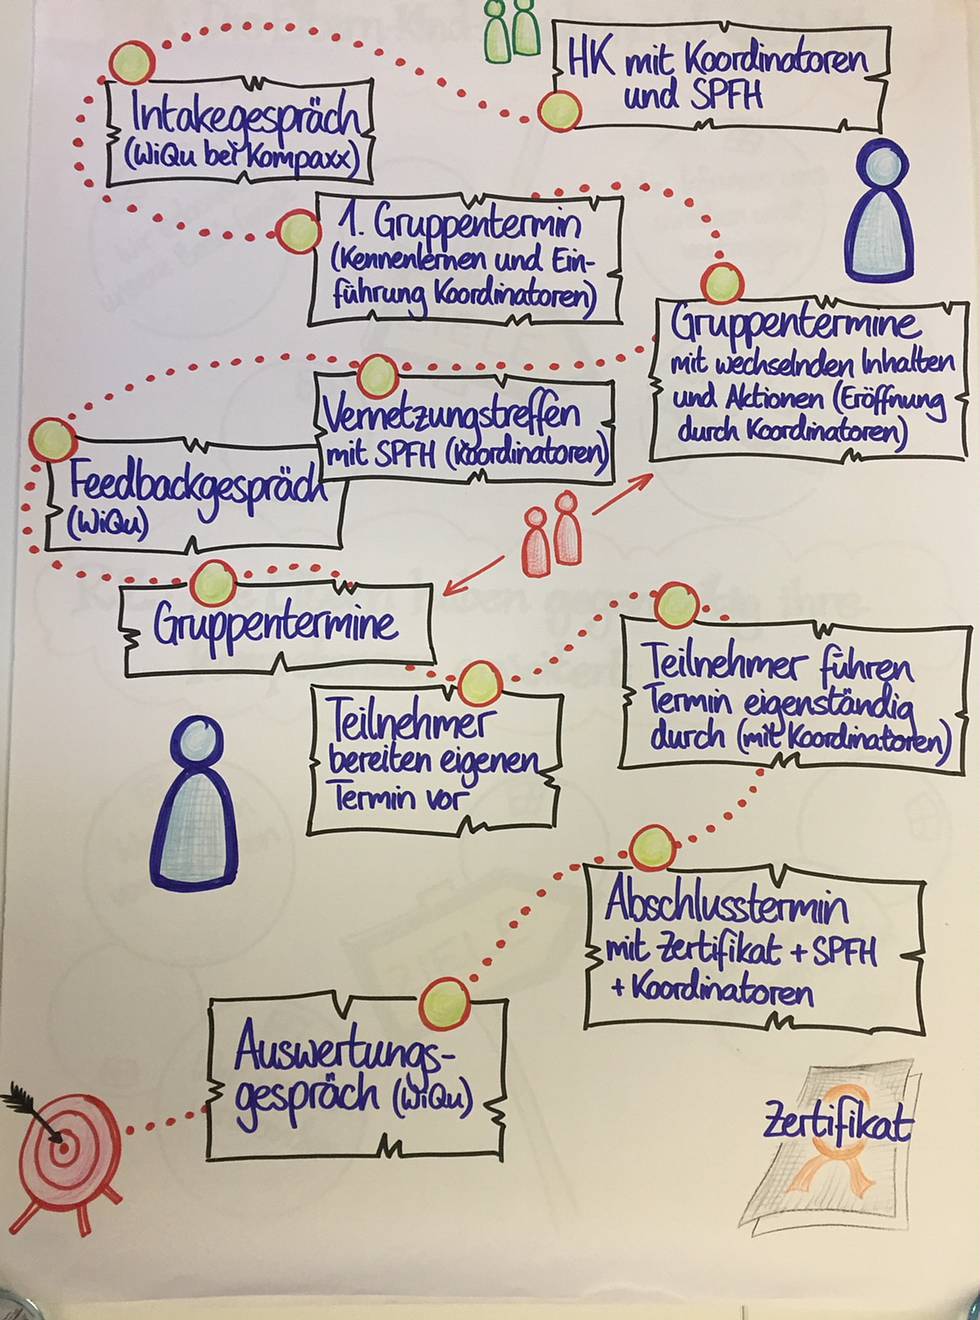 HK mit Koordinatoren
und SPFH
Intakegespräch
(WiQu bei Kompaxx)
1. Gruppentermin
(Kennenlernen und Ein-
führung Koordinatoren)
Gruppentermine
mit wechselnden Inhalten
und Aktionen (Eröffnung
durch Koordinatoren)
Vernetzungstreffen
mit SPFH (Koordinatoren)
Feedbackgespräch
(WiQu)
Gruppentermine
Teilnehmer
bereiten eigenen
Termin vor
Teilnehmer führen
Termin eigenständig
durch (mit Koordinatoren)
Abschlusstermin
mit Zertifikat + SPFH
+ Koordinatoren
Auswertungs-
gespräch (WiQu)
Zertifikat